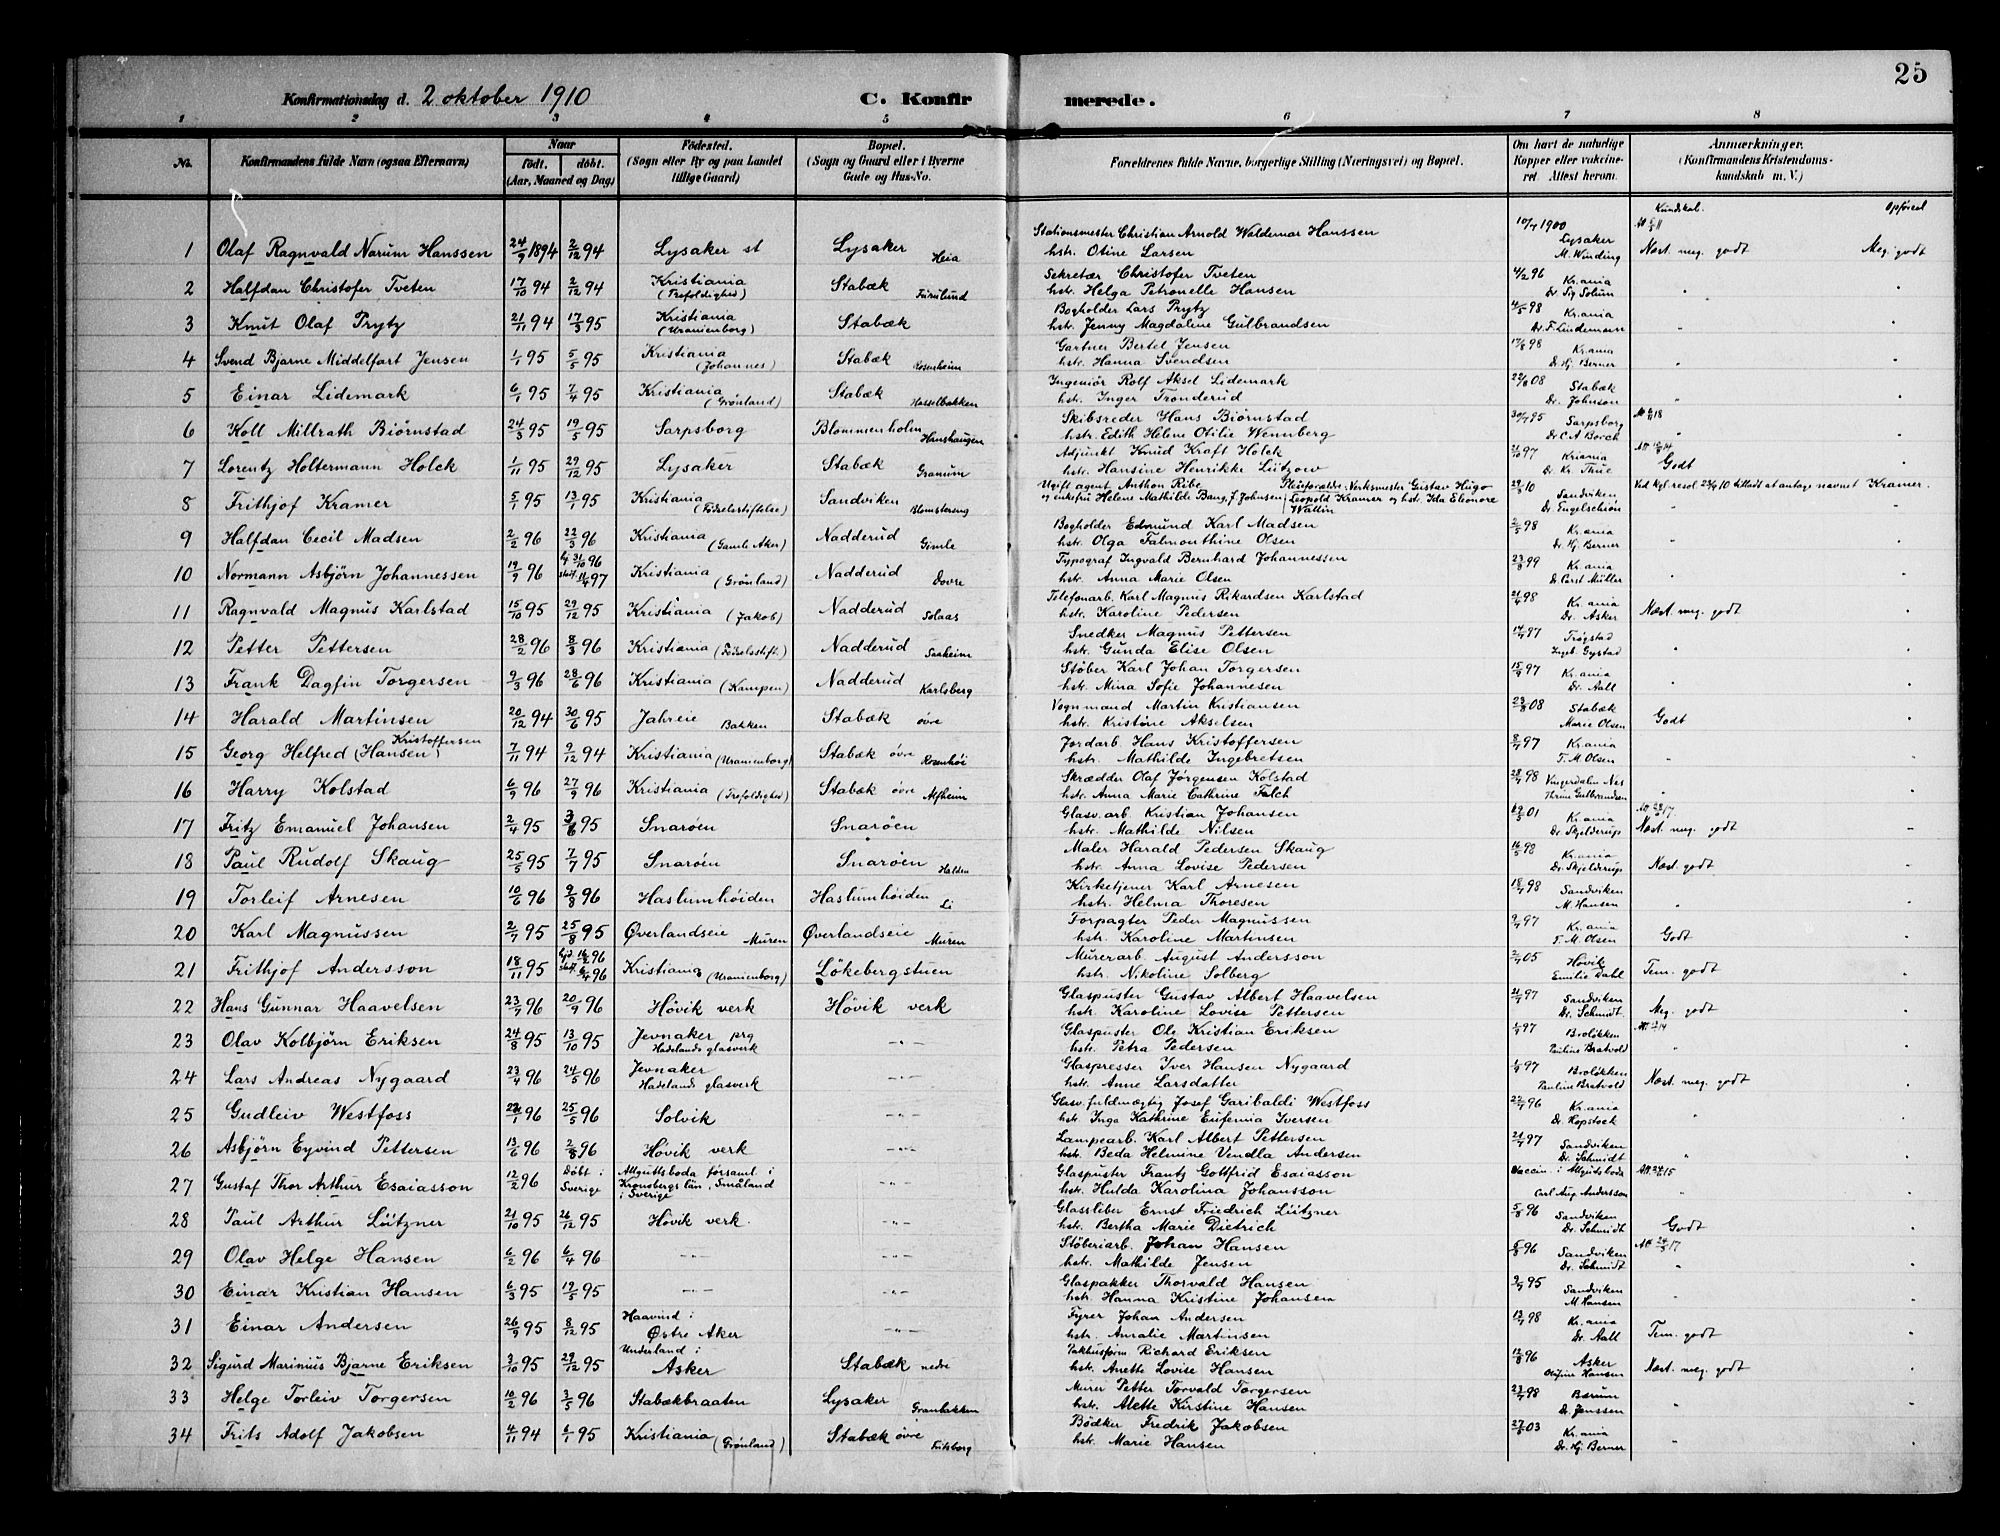 25
Konfirmationsdag d. 2 oktober 1910 C. Konfirmerede.
1 2 3 4 5 6 7 8
No. Konfirmandens fulde Navn (ogsaa Efternavn) Naar født. døbt. (Aar, Maaned og Dag) Fødested. (Sogn eller By og paa Landet tillige Gaard) Bopæl. (Sogn og Gaard eller i Byerne Gade og Hus-No. Forældrenes fulde Navne, borgerlige Stilling (Næringsvei) og Bopæl. Om havt de naturlige Kopper eller vaccineret. Attest herom. Anmærkninger. (Konfirmandens Kristendomskundskab m. V.)
Kundskab. Opførsel
1 Olaf Ragnvald Narum Hanssen 24/9 1894 2/12 94 Lysaker st Lysaker Heia Stationsmester Christian Arnold Waldemar Hanssen hstr. Otine Larsen 10/7 1900 Lysaker M. Winding Næst meg. godt Meg. godt
2 Halfdan Christofer Tveten 17/10 94 2/12 94 Kristiania (Trefoldighed) Stabæk Furulund Sekretær Christofer Tveten hstr. Helga Petronelle Hansen 4/2 96 Kr.ania Dr. Sig Solum "
3 Knut Olaf Prytz 21/11 94 17/3 95 Kristiania (Uranienborg) Stabæk Bogholder Lars Prytz hstr. Jenny Magdalene Gulbrandsen 4/5 98 Kr.ania Dr. F. Lindemann "
4 Svend Bjarne Middelfart Jensen 1/1 95 5/5 95 Kristiania (Johannes) Stabæk Rosenheim Gartner Bertel Jensen hstr. Hanna Svendsen 17/8 98 Kr.ania Dr. Hj. Berner "
5 Einar Lidemark 6/1 95 7/4 95 Kristiania (Grønland) Stabæk Hasselbakken Ingeniør Rolf Aksel Lidemark hstr. Inger Tronderud 22/8 08 Stabæk Dr. Johnson "
6 Koll Millrath Biørnstad 24/3 95 19/5 95 Sarpsborg Blommenholm Hanshaugen Skibsreder Hans Biørnstad hstr. Edith Helene Otilie Wennberg 30/7 95 Sarpsborg Dr. C.A Borch "
7 Lorentz Holtermann Holck 1/11 95 29/12 95 Lysaker Stabæk Granum Adjunkt Knud Kraft Holck hstr. Hansine Henrikke Lützow 2/10 97 Kr.ania Dr. Kr. Thue Godt
8 Frithjof Kramer 5/1 95 13/1 95 Kristiania (Fødselsstiftelse) Sandviken Blomstereng Ugift agent Anthon Ribe og enkefru Helene Mathilde Bang, f. Johnsen Pleiforældre: Verksmester Gustav Hugo Leopold Kramer og hstr. Ida Eleonore Wallin 29/3 10 Sandviken Dr. Engelschiøn Ved kgl. resol. 23/9 10 tilladt at antage navnet Kramer.
9 Halfdan Cecil Madsen 2/2 96 22/3 96 Kristiania (Gamle Aker) Nadderud Gimle Bogholder Edmund Karl Madsen hstr. Olga Falmouthine Olsen 2/5 98 Kr.ania Dr. Hj. Berner "
10 Normann Asbjørn Johannessen 19/9 96 hj 31/10 96 stadf. 11/4 97 Kristiania (Grønland) Nadderud Dovre Typograf Ingvald Bernhard Johannessen hstr. Anna Marie Olsen 23/8 99 Kr.ania Dr. Carst Müller "
11 Ragnvald Magnus Karlstad 15/10 95 29/12 95 Kristiania (Jakob) Nadderud Solaas Telefonarb. Karl Magnus Rikardsen Karlstad hstr. Karoline Pedersen 21/4 98 Kr.ania Dr. Asker Næst. meg. godt
12 Petter Pettersen 28/2 96 8/3 96 Kristiania (Fødselsstift.) Nadderud Saaheim Snedker Magnus Pettersen hstr. Gunda Elise Olsen 14/7 97 Trøgstad Ingeb. Gystad "
13 Frank Dagfin Torgersen 9/3 96 28/6 96 Kristiania (Kampen) Nadderud Karlsberg Støber Karl Johan Torgersen hstr. Mina Sofie Johannesen 15/9 97 Kr.ania Dr. Aall "
14 Harald Martinsen 20/12 94 30/6 95 Jahreie Bakken Stabæk øvre Vognmand Martin Kristiansen hstr. Kristine Akselsen 23/8 08 Stabæk Marie Olsen Godt
15 Georg Helfred (Hansen) Kristoffersen 7/11 94 9/12 94 Kristiania (Uranienborg) Stabæk øvre Rosenhøi Jordarb. Hans Kristoffersen hstr. Mathilde Ingebretsen 8/7 97 Kr.ania T. M Olsen "
16 Harry Kolstad 6/9 96 27/9 96 Kristiania (Trefoldighed) Stabæk øvre Alfheim Skrædder Olaf Jørgensen Kolstad hstr. Anna Marie Cathrine Falch 28/7 98 Vingerdalen Nes Thrine Gulbrandsen "
17 Fritz Emanuel Johansen 2/4 95 3/6 95 Snarøen Snarøen Glasv.arb. Kristian Johansen hstr. Mathilde Nilsen 01 Kr.ania Dr. Skjelderup Næst. meg. godt
18 Paul Rudolf Skaug 25/5 95 7/7 95 Snarøen Snarøen Halden Maler Harald Pedersen Skaug hstr. Anna Lovise Pedersen 16/5 98 Kr.ania Dr. Skjelderup Næst. godt
19 Torleif Arnesen 10/6 96 9/8 96 Haslumhøiden Haslumhøiden Li Kirketjener Karl Arnesen hstr. Helma Thoresen 18/7 98 Sandviken M. Hansen "
20 Karl Magnussen 2/7 95 25/8 95 Øverlandseie Muren Øverlandseie Muren Forpagter Peder Magnussen hstr. Karoline Martinsen 9/7 97 Kr.ania T. M. Olsen Godt
21 Frithjof Andersson 18/11 95 hjd. 16/2 96 stadf. 6/4 96 Kristiania (Uranienborg) Løkebergstuen Murerarb. August Andersson hstr. Nikoline Solberg 2/7 05 Høvik Emilie Dahl Tem. godt
22 Hans Gunnar Haavelsen 23/7 96 20/9 96 Høvik verk Høvik verk Glaspuster Gustav Albert Haavelsen hstr. Karoline Lovise Pettersen 21/7 97 Sandviken Dr. Schmidt. Meg. godt
23 Olav Kolbjørn Eriksen 24/8 95 13/10 95 Jevnaker prg Hadelands glasverk -"- Glaspuster Ole Kristian Eriksen hstr. Petra Pedersen 1/9 97 Broløkken Pauline Bratvold "
24 Lars Andreas Nygaard 23/4 96 24/5 96 Jevnaker Hadelands glasverk -"- Glaspresser Iver Hansen Nygaard hstr. Anne Larsdatter 1/9 97 Broløkken Pauline Bratvold Næst. meg. godt
25 Gudleiv Westfoss 22/1 96 25/5 96 Solvik -"- Glasv. fuldmægtig Josef Garibaldi Westfoss hstr. Inga Kathrine Eufemia Iversen 22/7 96 Kr.ania Dr. Kopstock "
26 Asbjørn Eyvind Pettersen 13/6 96 2/8 96 Høvik verk -"- Lampearb. Karl Albert Pettersen hstr. Beda Helmine Vendla Andersen 21/7 97 Sandviken Dr. Schmidt "
27 Gustaf Thor Arthur Esaiasson 12/2 96 Døbt i Sverige Algutsboda församl. i Kronobergs län, Småland i Sverige -"- Glaspuster Frantz Gottfrid Esaiasson hstr. Hulda Karolina Johansson Vaccin. i Algutsboda Carl Aug. Andersson "
28 Paul Arthur Lützner 21/10 95 26/12 95 Høvik verk. -"- Glassliber Ernst Friedrich Lützner hstr. Bertha Marie Dietrich 5/8 96 Sandviken Dr. Schmidt Godt
29 Olav Helge Hansen 6/2 96 6/4 96 -"- -"- Støberiarb. Johan Hansen hstr. Mathilde Jensen 5/8 96 Sandviken Dr. Schmidt "
30 Einar Kristian Hansen 6/3 95 19/5 95 -"- -"- Glaspakker Thorvald Hansen hstr. Hanna Kristine Johansen 2/9 95 Sandviken M Hansen "
31 Einar Andersen 26/9 95 8/12 95 Haavind i Østre Aker -"- Fyrer Johan Andersen hstr. Amalie Martinsen 13/9 98 Kr.ania Dr. Aall Tem. godt
32 Sigurd Marinius Bjarne Eriksen 3/10 95 29/12 95 Underland i Asker Stabæk nedre Pakhusform. Richard Eriksen hstr. Anette Lovise Hansen 12/8 96 Asker Olufine Hansen Næst. meg. godt
33 Helge Torleiv Torgersen 10/2 96 3/5 96 Stabækbraaten Lysaker Granbakken Murer Petter Torvald Torgersen hstr. Alette Kirstine Hansen 23/7 98 Bærum Dr. Jenssen "
34 Frits Adolf Jakobsen 4/11 94 6/1 95 Kristiania (Grønland) Stabæk øvre Fritsborg Bødker Fredrik Jakobsen hstr. Marie Hansen 27/8 03 Kr.ania Dr. Hj. Berner "